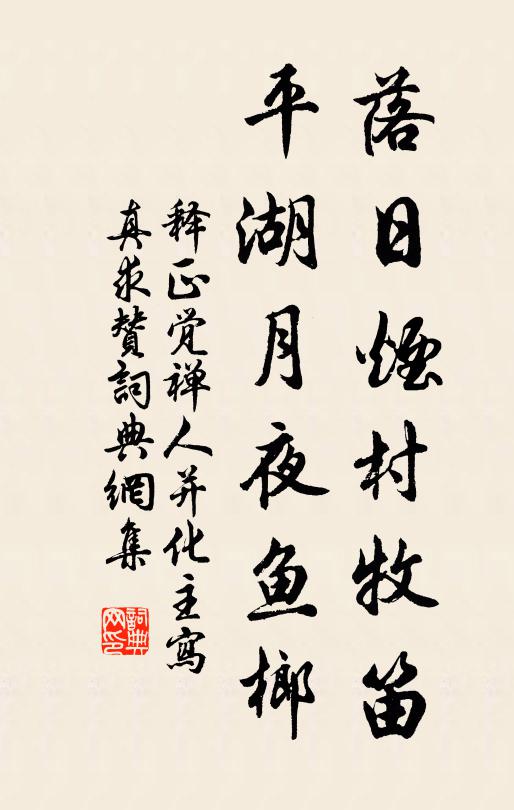 落日煙村牧笛
平湖月夜鱼榔
释正觉禅人并化主寫
真求赞詞典網集
詞典網印